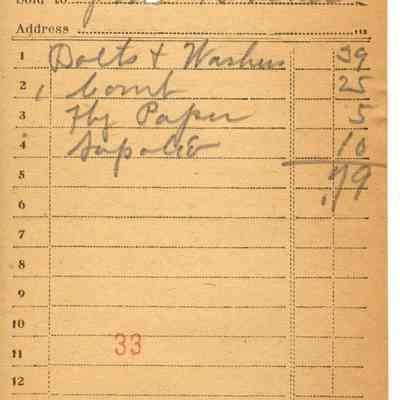 Sold to
Address
1 Bolts & Washers 39
2 1 Comb 25
3 Fly Paper 5
4 Sapolio 10
5 .79
6
7
8
9
10
11 33
12